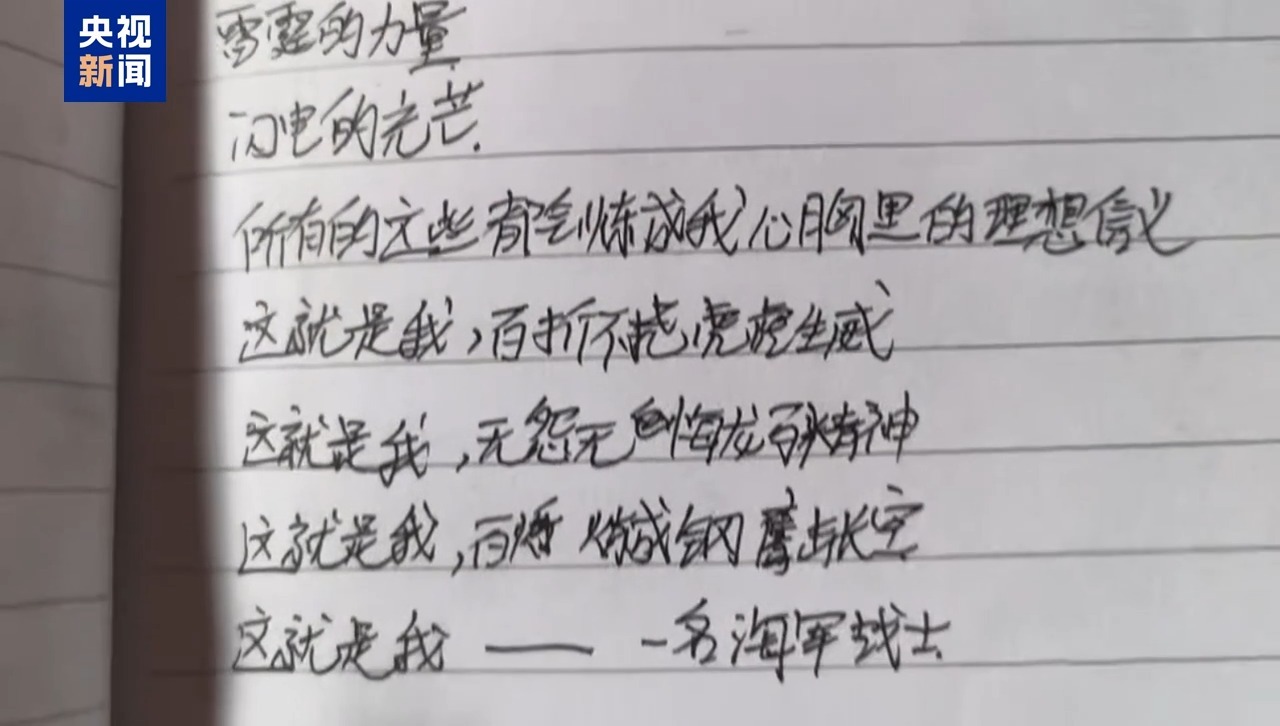 央视
新闻
雷霆的力量
闪电的光芒.
所有的这些都会炼成我心胸里的理想信义
这就是我，百折不挠虎虎生威
这就是我，无怨无悔龙马精神
这就是我，百炼成钢鹰击长空
这就是我——一名海军战士